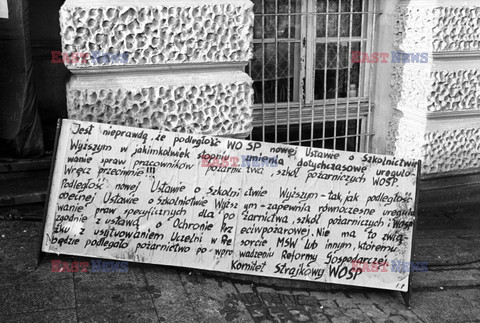 EAST NEWS
EAST NEWS
EAST NEWS
Jest nieprawdą, że podległość WOSP nowej Ustawie o Szkolnictwie
Wyższym w jakimkolwiek stopniu zmienia dotychczasowe uregulo-
wanie spraw pracowników pożarnictwa, szkół pożarniczych WOSP.
Wręcz przeciwnie!!!
Podległość nowej Ustawie o Szkolnictwie Wyższym - tak, jak podległość
obecnej Ustawie o Szkolnictwie Wyższym - zapewnia równoczesne uregulo-
wanie spraw specyficznych dla pożarnictwa, szkół pożarniczych i WOSP
zgodnie z ustawą o Ochronie Przeciwpożarowej. Nie ma to zwią-
zku z usytuowaniem Uczelni w Resorcie MSW lub innym, któremu
będzie podlegało pożarnictwo po wprowadzeniu Reformy Gospodarczej.
Komitet Strajkowy WOSP
EAST NEWS
EAST NEWS